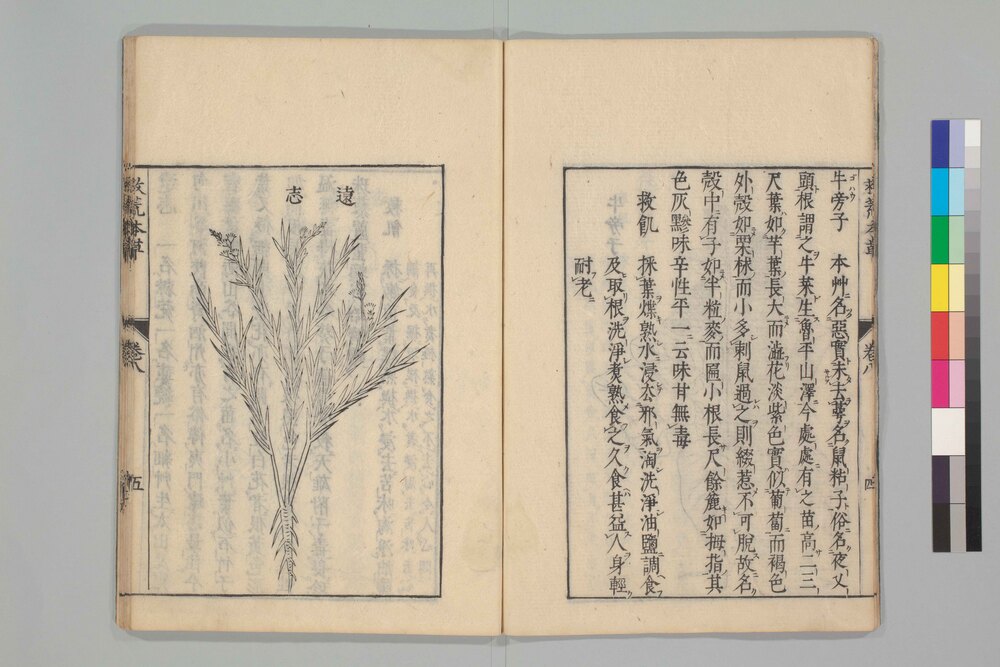 牛蒡子　本艸名惡實未去萼名鼠粘子俗名夜乂
頭根謂之牛菜生魯平山澤今處處有之苗高二三
尺葉如芋葉長大而澁花淡紫色實似葡萄而褐色
外殻如栗梂而小多刺鼠過之則綴惹不可脫故名
殻中有子如半粒麥而匾小根長尺餘麄如拇指其
色灰黲味辛性平一云味甘無毒
救飢　採葉煠熟水浸去邪氣淘洗淨油鹽調食
及取根洗淨煮熟食之久食甚益人身輕
耐老
救荒本草　卷八　四
遠志
救荒本草　卷八　五